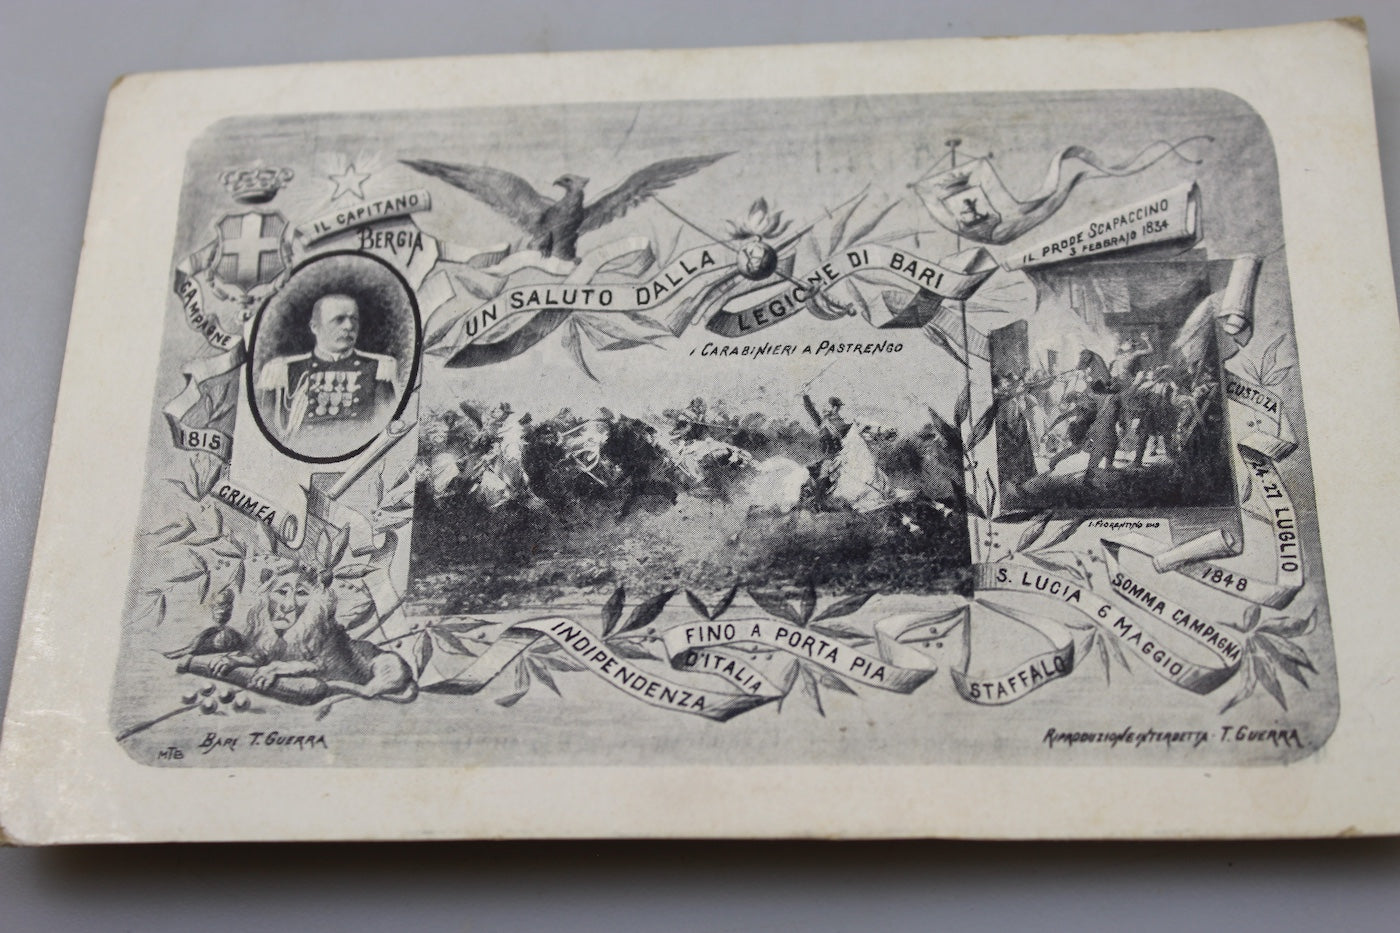 IL CAPITANO
BERGIA
UN SALUTO DALLA
LEGIONE DI BARI
IL PRODE SCAPACCINO
3 FEBBRAJO 1834
I CARABINIERI A PASTRENGO
CAMPAGNE
1815
GRIMEA
CUSTOZA
24.27 LUGLIO
1848
I. FIORENTINO
SOMMA CAMPAGNA
S. LUCIA 6 MAGGIO
STAFFALO
INDIPENDENZA
D'ITALIA
FINO A PORTA PIA
MTB
BARI T. GUERRA
RIPRODUZIONE INTERDETTA - T. GUERRA